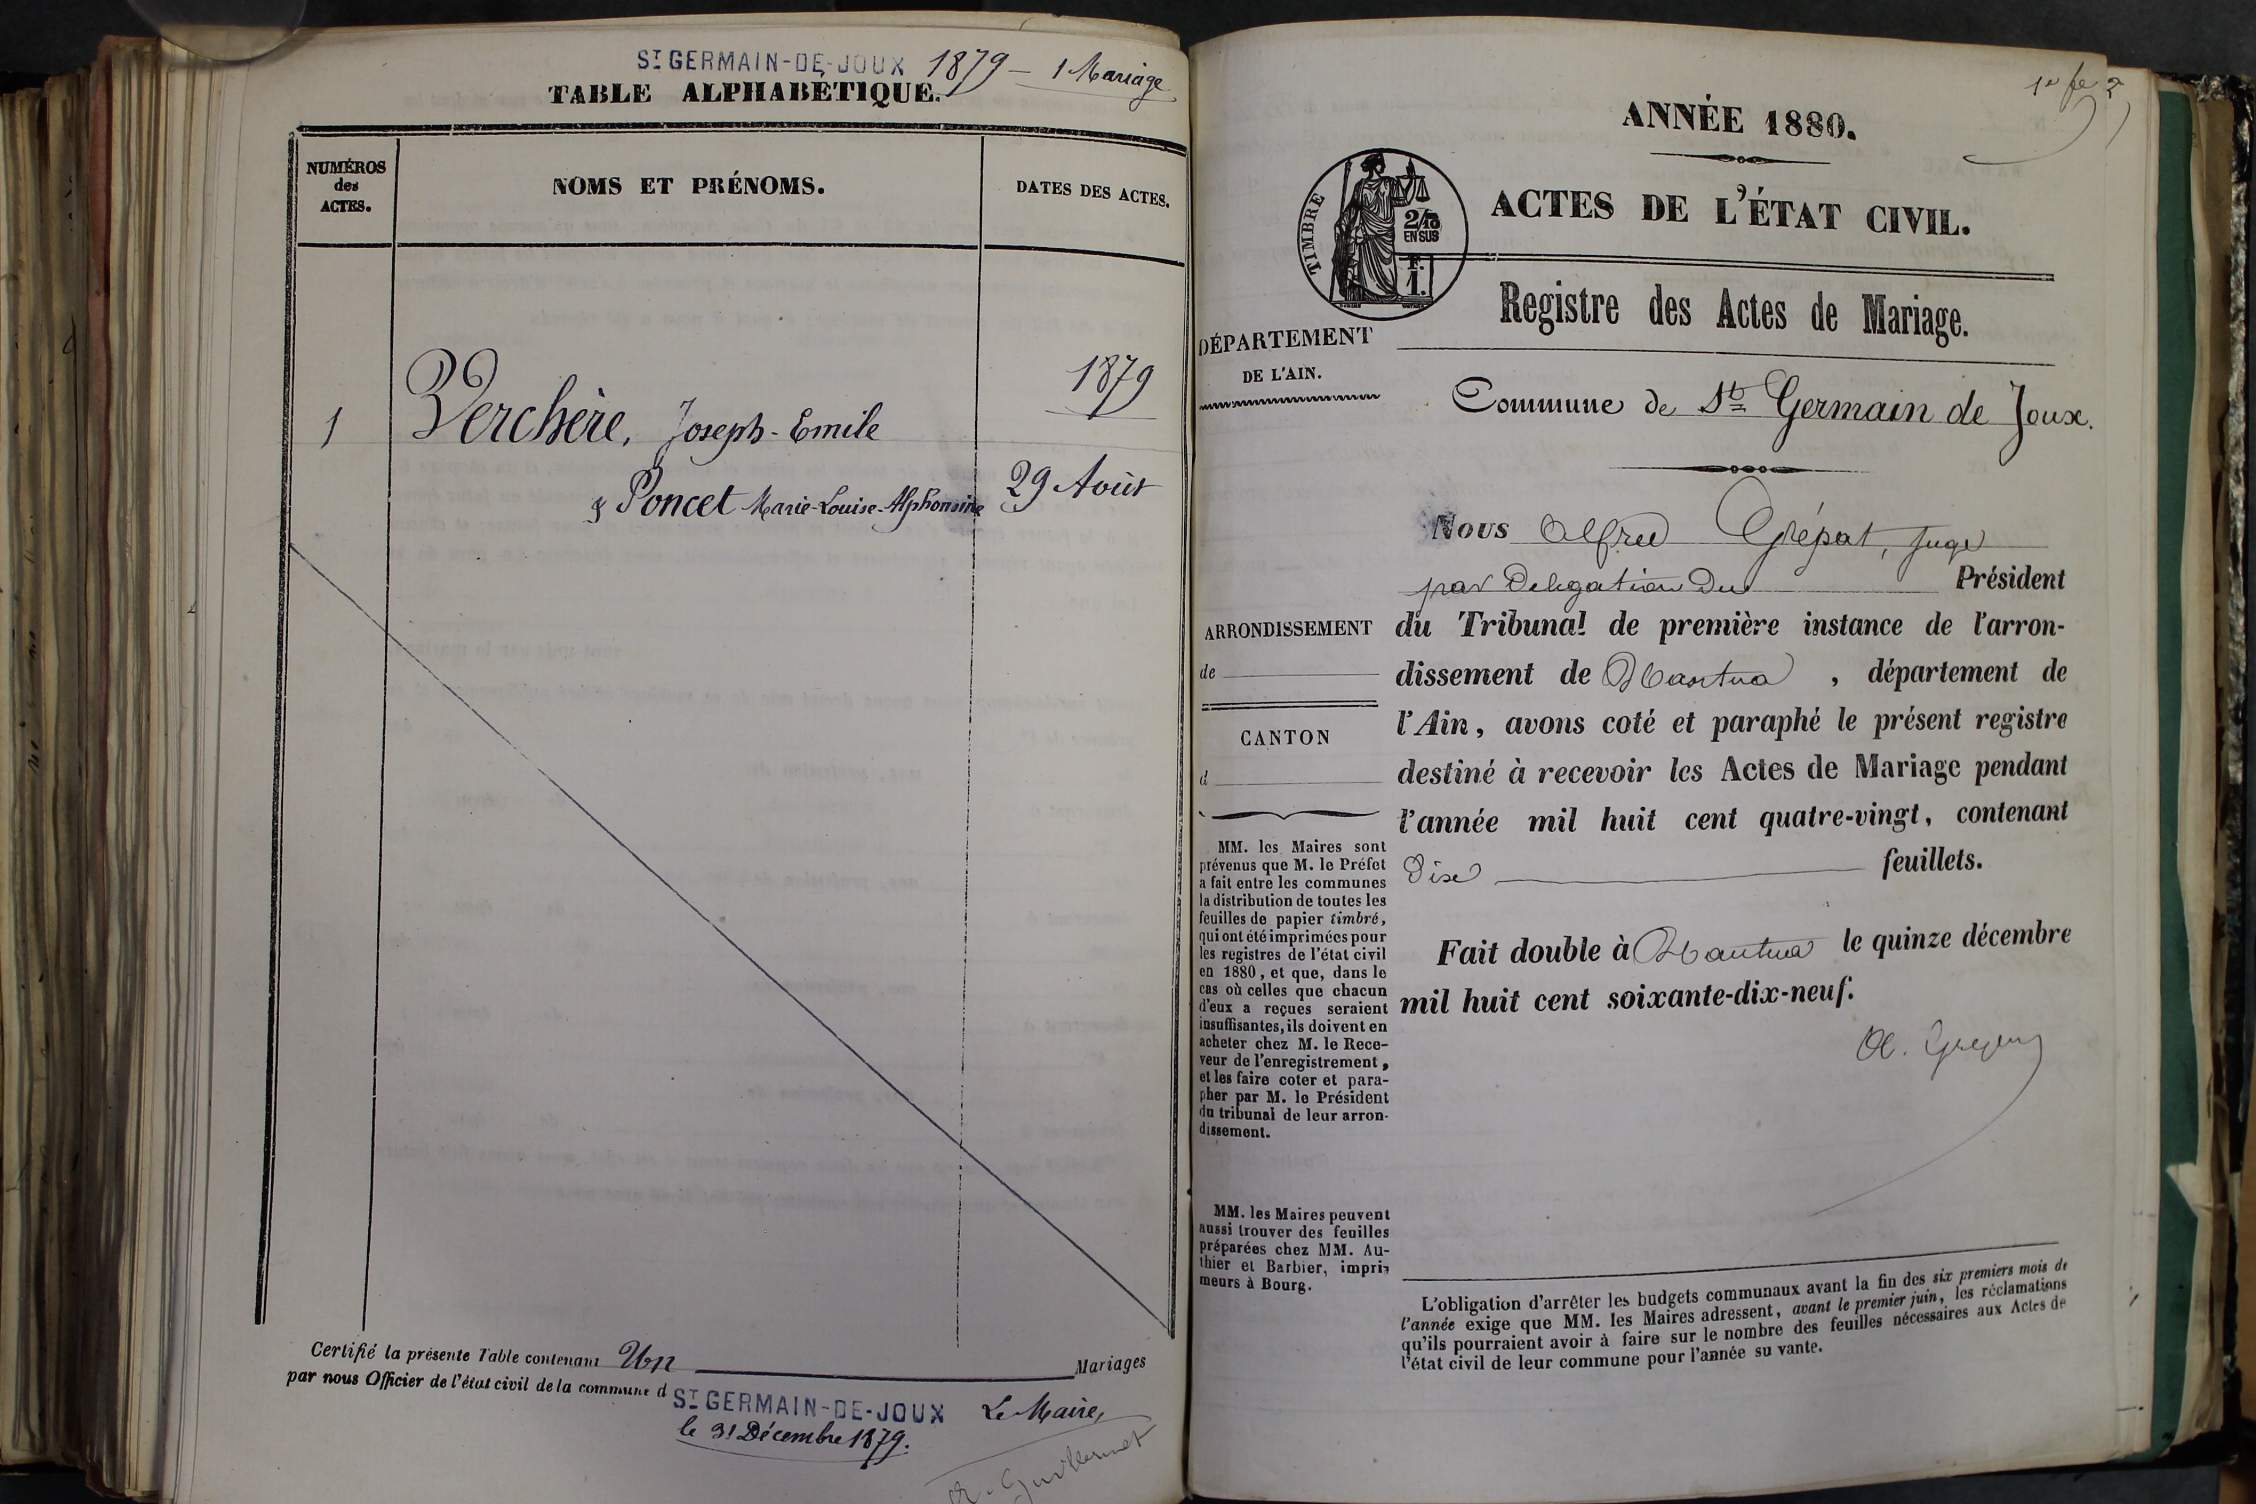 ST GERMAIN-DE-JOUX 1879 – 1 Mariage
TABLE ALPHABÉTIQUE.
NUMÉROS
des
ACTES.
NOMS ET PRÉNOMS.
DATES DES ACTES.
1879
1 Verchère, Joseph-Emile
& Poncet Marie-Louise-Alphonsine 29 Août
Certifié la présente Table contenant Un Mariages
par nous Officier de l'état civil de la commune d ST GERMAIN-DE-JOUX Le Maire,
le 31 Décembre 1879.
ANNÉE 1880.
TIMBRE
2/10
EN SUS
F.
1.
ACTES DE L'ÉTAT CIVIL.
Registre des Actes de Mariage.
DÉPARTEMENT
DE L'AIN.
Commune de St Germain de Joux.
Nous Alfred Grépat, Juge
par Délégation du Président
du Tribunal de première instance de l'arron-
dissement de Nantua, département de
l'Ain, avons coté et paraphé le présent registre
destiné à recevoir les Actes de Mariage pendant
l'année mil huit cent quatre-vingt, contenant
Dix feuillets.
Fait double à Nantua le quinze décembre
mil huit cent soixante-dix-neuf.
ARRONDISSEMENT
de
CANTON
d
MM. les Maires sont
prévenus que M. le Préfet
a fait entre les communes
la distribution de toutes les
feuilles de papier timbré,
qui ont été imprimées pour
les registres de l'état civil
en 1880, et que, dans le
cas où celles que chacun
d'eux a reçues seraient
insuffisantes, ils doivent en
acheter chez M. le Rece-
veur de l'enregistrement,
et les faire coter et para-
pher par M. le Président
du tribunal de leur arron-
dissement.
MM. les Maires peuvent
aussi trouver des feuilles
préparées chez MM. Au-
thier et Barbier, impri-
meurs à Bourg.
L'obligation d'arrêter les budgets communaux avant la fin des six premiers mois de
l'année exige que MM. les Maires adressent, avant le premier juin, les réclamations
qu'ils pourraient avoir à faire sur le nombre des feuilles nécessaires aux Actes de
l'état civil de leur commune pour l'année su vante.